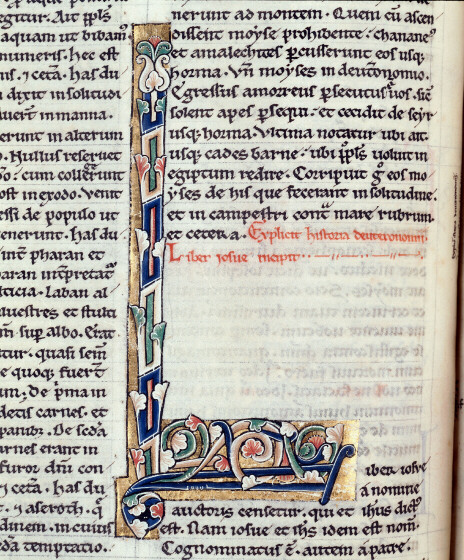 egitur. Aut ip̅ls
aquam ut bibam᷒
numeris. Hec est
ns. ⁊ cet̅a. has du
dixit in solitudi
uer̅t in manna.
erunt in alterum
o. Nullus reseruet
o. cum colle̅runt
ost in exodo. Venit
essi de populo ut
enerunt. has du
int pharan et
aran int̅pretat᷒
ticia. Laban al
luestres et stulta
m̅ sup̲ albo. Erat
tur. quasi sem̅
e quoq; fuer̅t
um, de p̅ma in
decis carnes. et
panib̲. De sc̅da
arnes erant in
furor dn̅i con
⁊ cet̅a. has du
⁊ aseroth. q̅
dinem. in cuius
eda temptatio.
nerunt ad montem. Quem cu̅ ascen
dissent moyse prohibente. chanane᷒
et amalechites percusserunt eos usq;
horma. Vn̅ moyses in deut̅onomio.
Egressus amorreus persecutus uos. sic̅
solent apes persequi. et cecidit de seyr
usq; horma. Vltima notatur ubi uit̅
usq; cades barne. ubi ip̅ls uoluit in
egiptum redire. Corripuit g̊ eos mo
yses de his que fecerant in solitudine.
et in campestri cont̅ mare rubrum.
et cetera. Explicit historia deuteronomii.
Liber iosue incipit.
L
iber iosue
a nomine
auctoris censetur. qui et ihus dict᷒
est. Nam iosue et ih̅s idem est nom̅.
Cognominatus e̅. autem a patre.